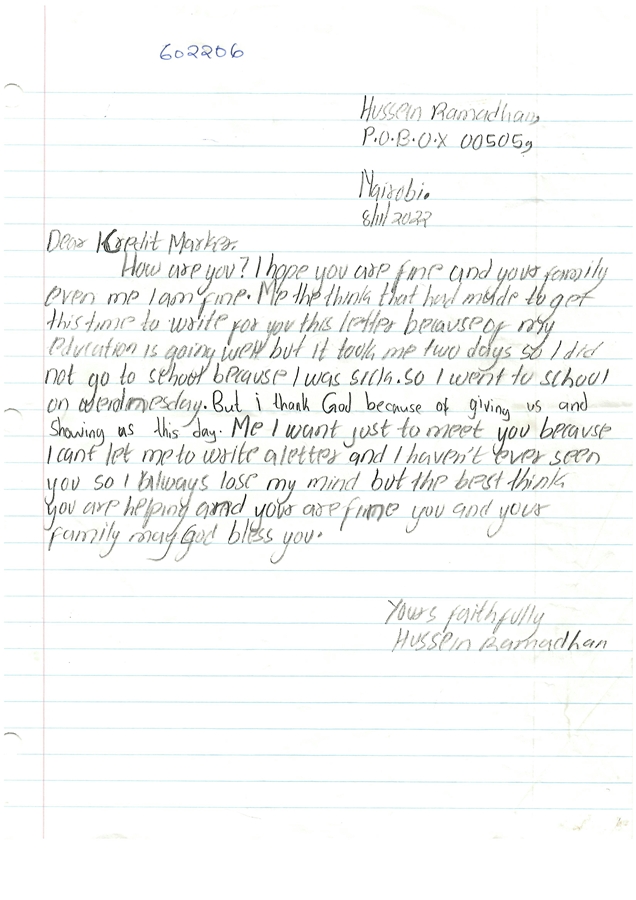 602206
Hussein Ramadhan,
P.O.B.O.X 00505,
Nairobi.
8/11/2022
Dear Kredit Marker.
How are you? I hope you are fine and your family
even me I am fine. Me the think that had made to get
this time to write for you this letter because of my
education is going well but it took me two days so I did
not go to school because I was sick. so I went to school
on wednesday. But i thank God because of giving us and
showing us this day. Me I want just to meet you because
I cant let me to write a letter and I haven't ever seen
you so I always lose my mind but the best think
you are helping and your are fine you and your
family may God bless you.
Yours faithfully
Hussein Ramadhan